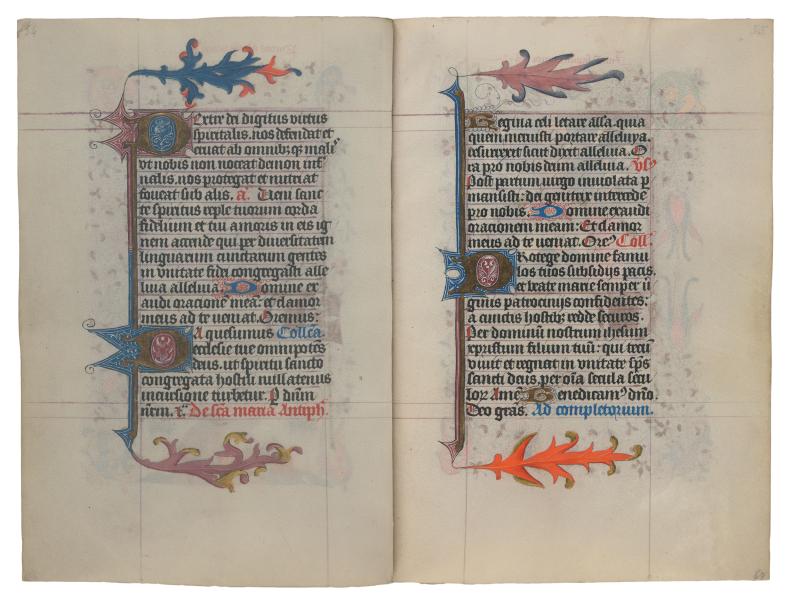 Dextre dei digitus virtus
spiritalis. nos defendat et
eruat ab omnibꝫ malis
vt nobis non noceat demon infer
nalis. nos protegat et nutriat
foueat sub alis. a. Veni sanc
te spiritus reple tuorum corda
fidelium et tui amoris in eis ig
nem accende qui per diuersitatem
linguarum cunctarum gentes
in vnitate fidei congregasti alle
luia alleluia. Domine ex
audi orationē meā: et clamor
meus ad te veniat. Oremus:
Da quesumus Collcā.
ecclesie tue omnipotēs
deus. ut spiritu sancto
congregata hostili nullatenus
incursione turbetur. P dnm̄
nr̄m. Desc̄a maria Antiph̄.
Regina celi letare alla. quia
quem meruisti portare alleluya.
resurrexit sicut dixit alleluia. O
ra pro nobis deum alleluia. Vs
Post partum uirgo inuiolata p
mansisti: dei genitrix intercede
pro nobis. Domine exaudi
orationem meam: Et clamor
meus ad te veniat. Orē Coll.
Protege domine famu
los tuos subsidijs pacis.
et beate marie semper ū
ginis patrocinijs confidentes:
a cunctis hostibꝫ redde securos.
Per dominū nostrum ihesum
xpristum filium tuū: qui tecū
viuit et regnat in vnitate sp̄s
sancti deus. per oīa secula secu
lor Amē Benedicamꝰ dn̄o.
Deo gr̄as. Ad completorium.